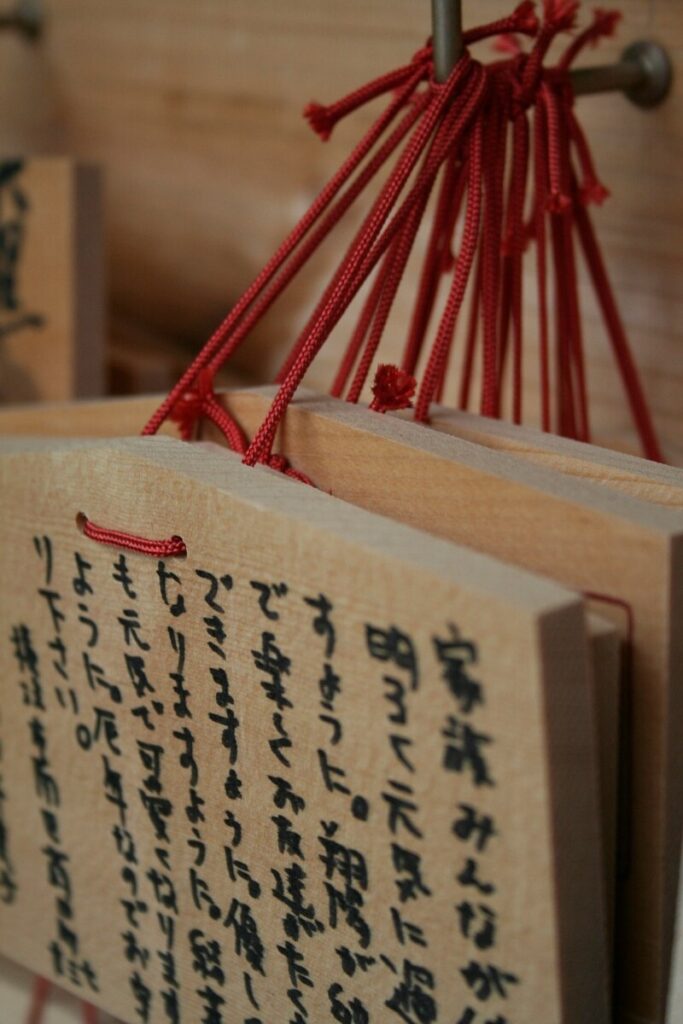 家族みんなが
明るく元気に過
すように。翔陽が幼
で楽しくお友達がたく
できますように。優し
なりますように。
も元気で可愛くなります
ように。厄年なのでお守
り下さい。
横浜市